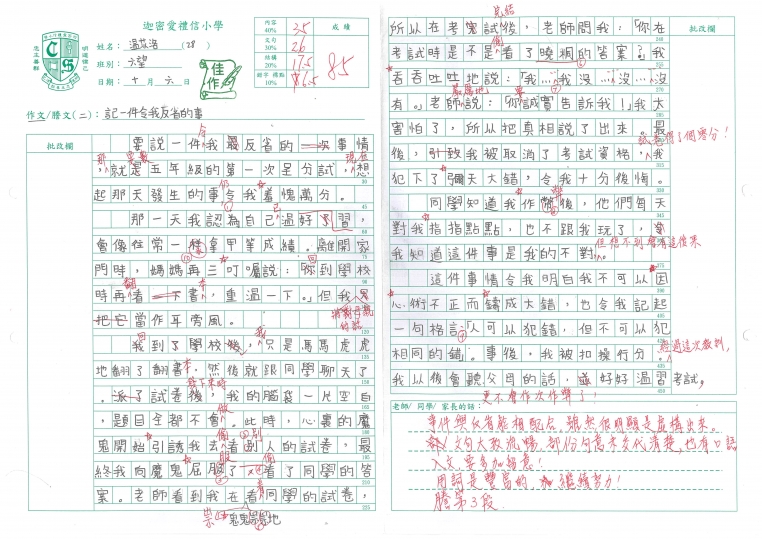 迦密愛禮信小學
姓名： (28)
班別： 六望
日期： 十 月 六 日
內容 40% 35
文句 30% 26
結構 20% 17.5
錯字 標點 10% 6.5
成績
85
佳作
作文/謄文(二)：記一件令我反省的事
批改欄
要說一件我最反省的一次事情
，就是五年級的第一次呈分試，想
起那天發生的事令我羞愧萬分。
那一天我認為自己溫好了習，
會像往常一樣拿甲等成績。離開家
門時，媽媽再三叮囑說：「你到學校
時再看一下書，重溫一下。」但我
把它當作耳旁風。
我到了學校後，只是馬馬虎虎
地翻了翻書，然後就跟同學聊天了
。派了試卷後，我的腦袋一片空白
，題目全都不會。此時，心裏的魔
鬼開始引誘我去看別人的試卷，最
終我向魔鬼屈服了，看了同學的答
案。老師看到我在看同學的試卷，
鬼鬼祟祟地
批改欄
所以在考完試後，老師問我：「你在
考試時是不是看了曉桐的答案？」我
吞吞吐吐地說：「我…我沒…沒…沒
有。」老師說：「你誠實告訴我！」我太
害怕了，所以把真相說了出來。最
後，引致我被取消了考試資格，我
犯下了彌天大錯，令我十分後悔。
同學知道我作弊後，他們每天
對我指指點點，也不跟我玩了，
我知道這件事是我的不對。
這件事情令我明白我不可以因
心術不正而鑄成大錯，也令我記起
一句格言「人可以犯錯，但不可以犯
相同的錯。」事後，我被扣操行分。
我以後會聽父母的話，並好好溫習考試，
更不會作次作弊了！
經過這次教訓，
老師/ 同學/ 家長的話：
事件與反省能相配合，雖然很明顯是虛構出來。
文句大致流暢，部份句意未交代清楚，也有口語
入文，要多加留意！
用詞是豐富的，繼續努力！
謄第3段